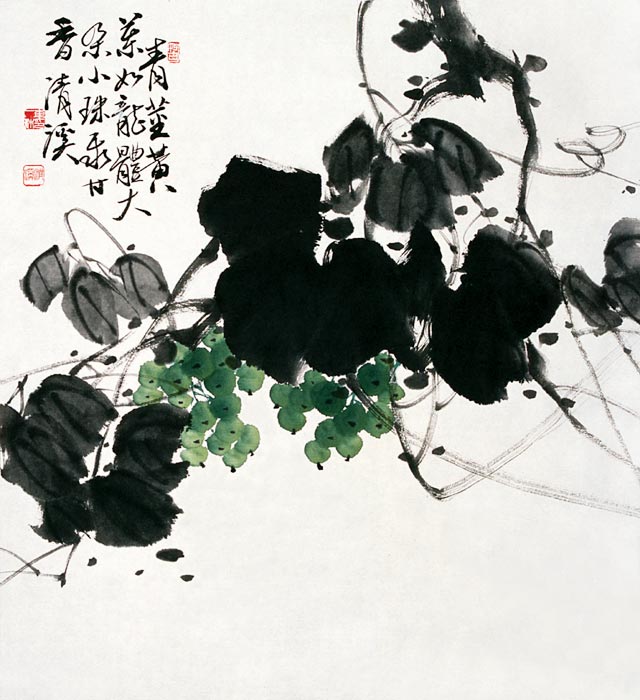 青莖黃
葉如龍體大
朶小珠甘
香清溪